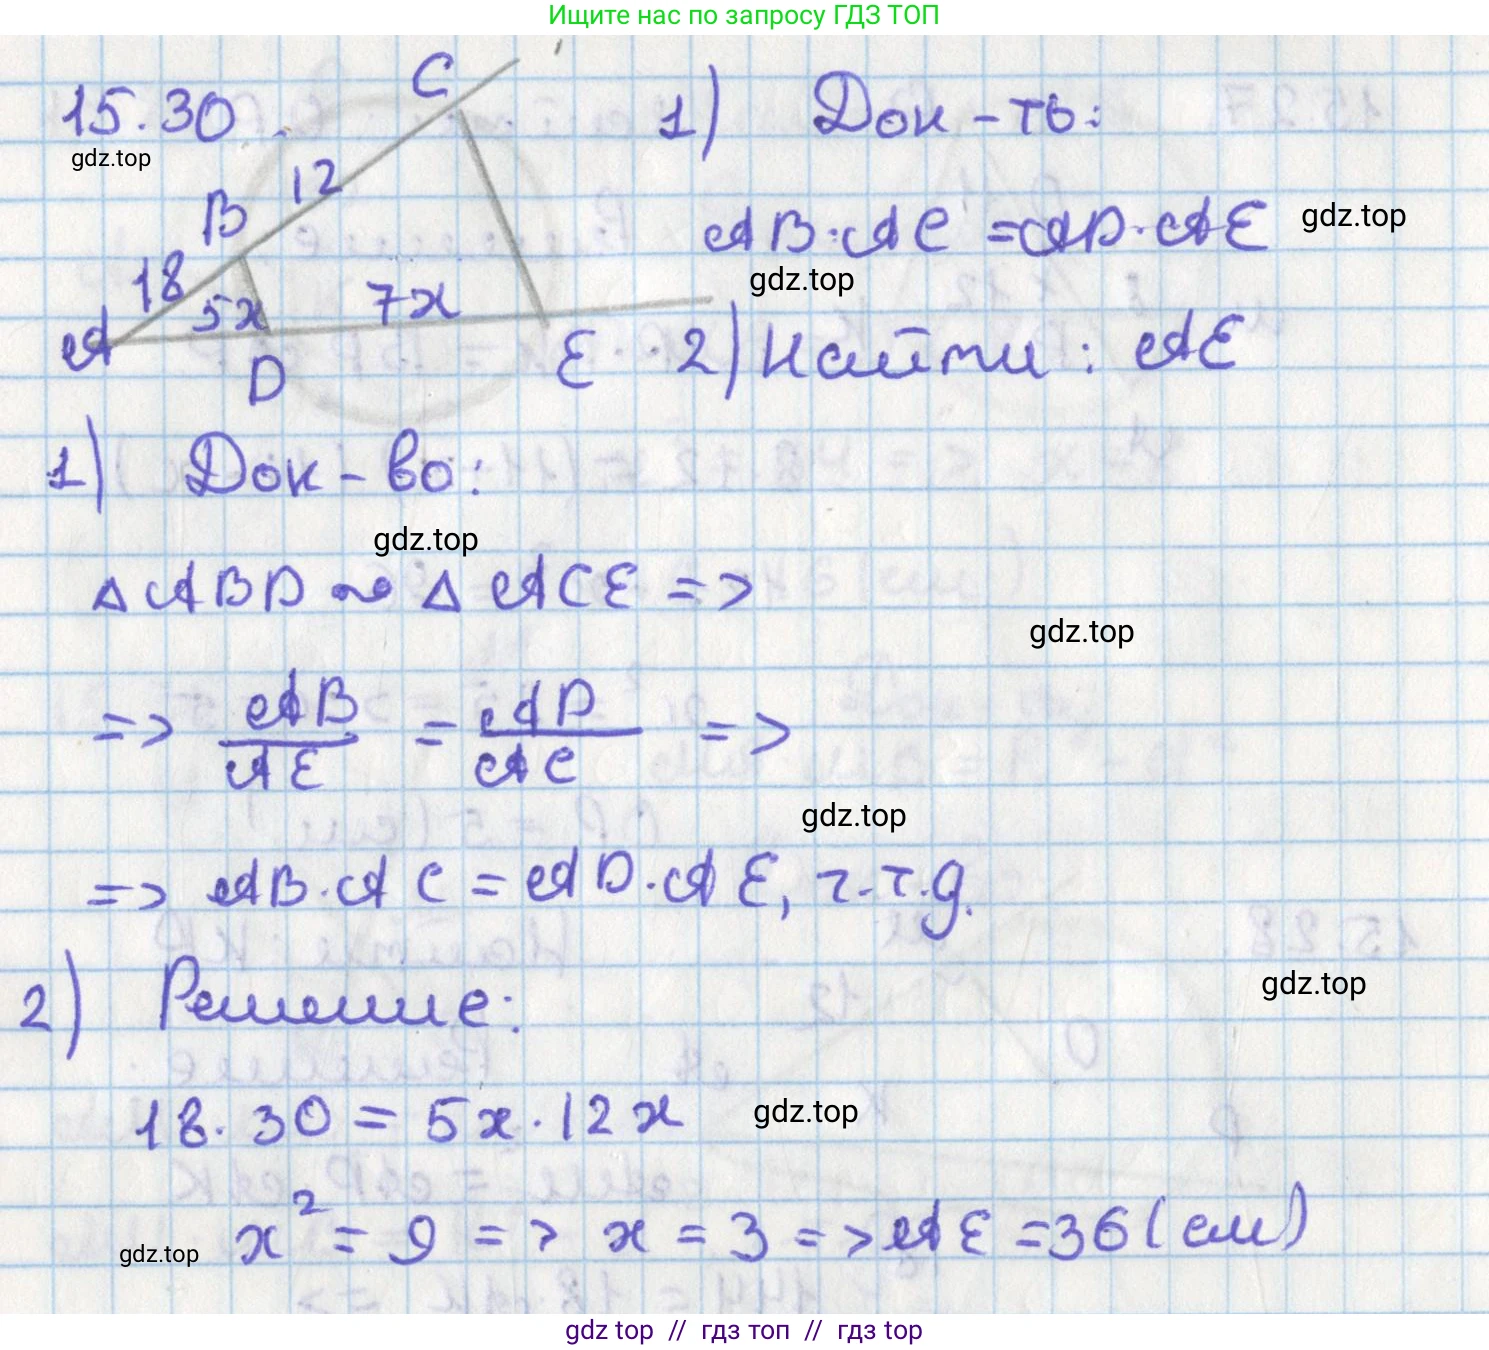 Ищите нас по запросу ГДЗ ТОП
15.30
gdz.top
C
12
B
18
5x
7x
A
D
E
1) Док-ть:
AB·AC = AD·AE
gdz.top
gdz.top
2) Найти: AE
1) Док-во:
gdz.top
△ABD ∾ △ACE =>
gdz.top
=> AB/AE = AD/AC =>
gdz.top
=> AB·AC = AD·AE, ч.т.д.
2) Решение:
gdz.top
18·30 = 5x·12x
gdz.top
x² = 9 => x = 3 => AE = 36 (см)
gdz.top
gdz top // гдз топ // гдз top